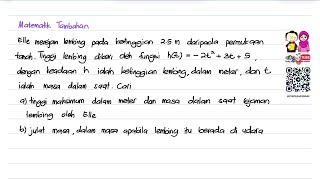 Matematik Tambahan
Elle merejam lembing pada ketinggian 2.5 m daripada permukaan
tanah. Tinggi lembing diberi oleh fungsi h(t) = -2t² + 3t + 5,
dengan keadaan h ialah ketinggian lembing, dalam meter, dan t
ialah masa dalam saat. Cari
a) tinggi maksimum dalam meter dan masa dalam saat rejaman
lembing oleh Elle
b) julat masa, dalam masa apabila lembing itu berada di udara